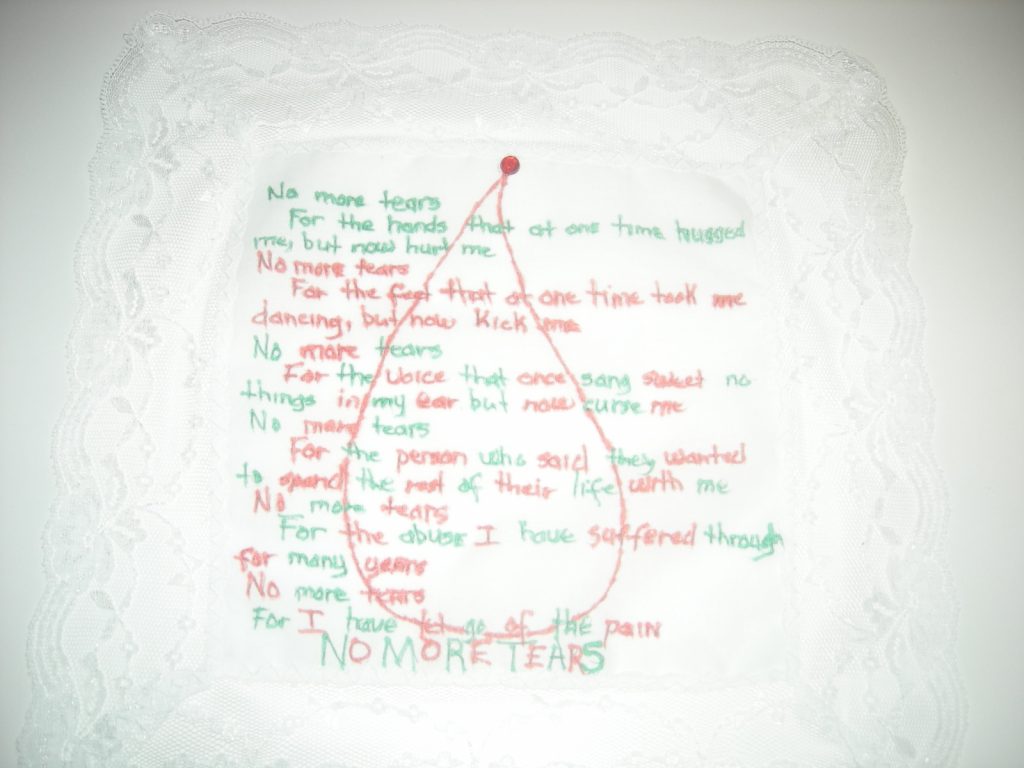 No more tears
For the hands that at one time hugged
me, but now hurt me
No more tears
For the feet that at one time took me
dancing, but now kick me
No more tears
For the voice that once sang sweet no
things in my ear but now curse me
No more tears
For the person who said they wanted
to spend the rest of their life with me
No more tears
For the abuse I have suffered through
for many years
No more tears
For I have let go of the pain
NO MORE TEARS